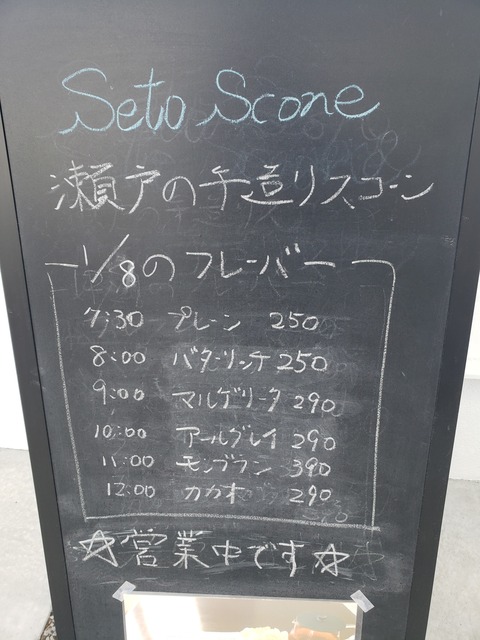 Seto Scone
瀬戸の手造りスコーン
1/8のフレーバー
7:30 プレーン 250
8:00 バターリッチ 250
9:00 マルゲリータ 290
10:00 アールグレイ 290
11:00 モンブラン 390
12:00 カカオ 290
☆営業中です☆